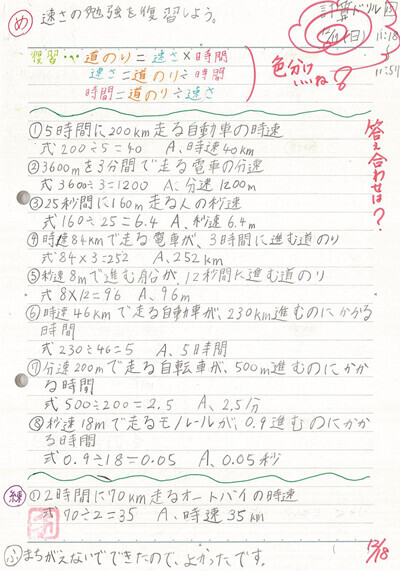 め 速さの勉強を復習しよう。
計算ドリル
11:18
11:54
復習…道のり=速さ×時間
速さ=道のり÷時間
時間=道のり÷速さ
色分け
いいね
答え合わせは?
①5時間に200km走る自動車の時速
式 200÷5=40 A、時速40km
②3600mを3分間で走る電車の分速
式 3600÷3=1200 A、分速1200m
③25秒間に160m走る人の秒速
式 160÷25=6.4 A、秒速6.4m
④時速84kmで走る電車が、3時間に進む道のり
式 84×3=252 A、252km
⑤秒速8mで進む船が、12秒間に進む道のり
式 8×12=96 A、96m
⑥時速46kmで走る自動車が、230km進むのにかかる
時間
式 230÷46=5 A、5時間
⑦分速200mで走る自転車が、500m進むのにかか
る時間
式 500÷200=2.5 A、2.5分
⑧秒速18mで走るモノレールが、0.9進むのにかか
る時間
式 0.9÷18=0.05 A、0.05秒
練 ①2時間に70km走るオートバイの時速
式 70÷2=35 A、時速35km
ふ まちがえないでできたので、よかったです。
12/18